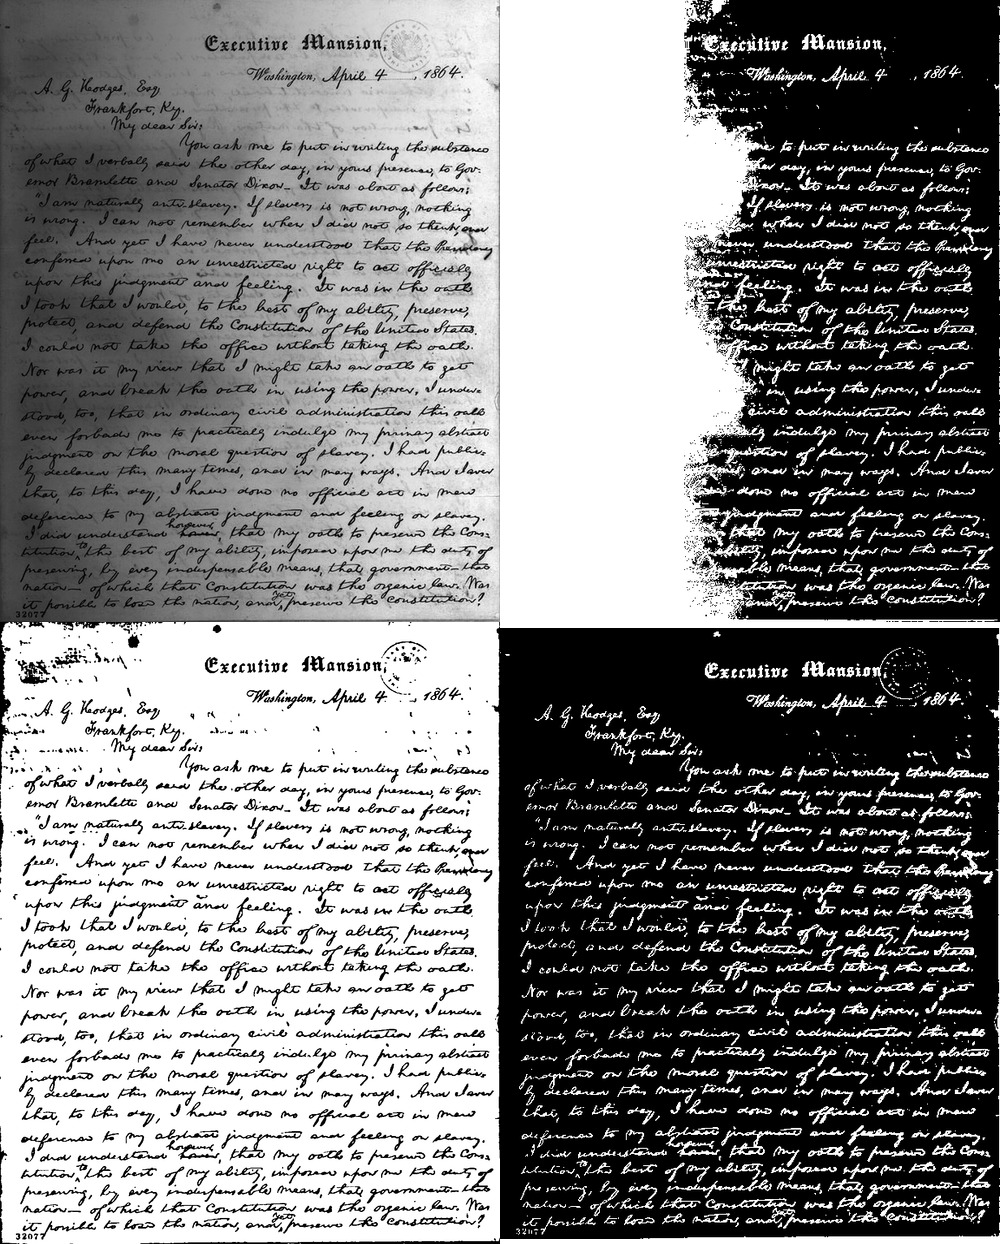 Executive Mansion,
Washington, April 4, 1864.
A. G. Hodges, Esq
Frankfort, Ky.
My dear Sir:
You ask me to put in writing the substance
of what I verbally said the other day, in your presence, to Gov-
ernor Bramlette and Senator Dixon— It was about as follows:
"I am naturally anti-slavery. If slavery is not wrong, nothing
is wrong. I can not remember when I did not so think, and
feel. And yet I have never understood that the Presidency
conferred upon me an unrestricted right to act officially
upon this judgment and feeling. It was in the oath
I took that I would, to the best of my ability, preserve,
protect, and defend the Constitution of the United States.
I could not take the office without taking the oath.
Nor was it my view that I might take an oath to get
power, and break the oath in using the power. I under-
stood, too, that in ordinary civil administration this oath
even forbade me to practically indulge my primary abstract
judgment on the moral question of slavery. I had public-
ly declared this many times, and in many ways. And I aver
that, to this day, I have done no official act in mere
deference to my abstract judgment and feeling on slavery.
I did understand however, that my oath to preserve the Con-
stitution to the best of my ability, imposed upon me the duty of
preserving, by every indispensable means, that government—that
nation— of which that Constitution was the organic law. Was
it possible to lose the nation, and yet preserve the constitution?
32077
Executive Mansion,
Washington, April 4, 1864.
me to put in writing the substance
her day, in your presence, to Gov-
Dixon— It was about as follows:
If slavery is not wrong, nothing
when I did not so think, and
never understood that the Presidency
unrestricted right to act officially
and feeling. It was in the oath
the best of my ability, preserve,
Constitution of the United States.
office without taking the oath.
I might take an oath to get
in using the power. I under-
civil administration this oath
ly indulge my primary abstract
question of slavery. I had public-
, and in many ways. And I aver
done no official act in mere
judgment and feeling on slavery.
that my oath to preserve the Con-
ability, imposed upon me the duty of
sable means, that government—that
stitution was the organic law. Was
and yet preserve the constitution?
Executive Mansion,
Washington, April 4, 1864.
A. G. Hodges, Esq
Frankfort, Ky.
My dear Sir:
You ask me to put in writing the substance
of what I verbally said the other day, in your presence, to Gov-
ernor Bramlette and Senator Dixon— It was about as follows:
"I am naturally anti-slavery. If slavery is not wrong, nothing
is wrong. I can not remember when I did not so think, and
feel. And yet I have never understood that the Presidency
conferred upon me an unrestricted right to act officially
upon this judgment and feeling. It was in the oath
I took that I would, to the best of my ability, preserve,
protect, and defend the Constitution of the United States.
I could not take the office without taking the oath.
Nor was it my view that I might take an oath to get
power, and break the oath in using the power. I under-
stood, too, that in ordinary civil administration this oath
even forbade me to practically indulge my primary abstract
judgment on the moral question of slavery. I had public-
ly declared this many times, and in many ways. And I aver
that, to this day, I have done no official act in mere
deference to my abstract judgment and feeling on slavery.
I did understand however, that my oath to preserve the Con-
stitution to the best of my ability, imposed upon me the duty of
preserving, by every indispensable means, that government—that
nation— of which that Constitution was the organic law. Was
it possible to lose the nation, and yet preserve the constitution?
32077
Executive Mansion,
Washington, April 4, 1864.
A. G. Hodges, Esq
Frankfort, Ky.
My dear Sir:
You ask me to put in writing the substance
of what I verbally said the other day, in your presence, to Gov-
ernor Bramlette and Senator Dixon— It was about as follows:
"I am naturally anti-slavery. If slavery is not wrong, nothing
is wrong. I can not remember when I did not so think, and
feel. And yet I have never understood that the Presidency
conferred upon me an unrestricted right to act officially
upon this judgment and feeling. It was in the oath
I took that I would, to the best of my ability, preserve,
protect, and defend the Constitution of the United States.
I could not take the office without taking the oath.
Nor was it my view that I might take an oath to get
power, and break the oath in using the power. I under-
stood, too, that in ordinary civil administration this oath
even forbade me to practically indulge my primary abstract
judgment on the moral question of slavery. I had public-
ly declared this many times, and in many ways. And I aver
that, to this day, I have done no official act in mere
deference to my abstract judgment and feeling on slavery.
I did understand however, that my oath to preserve the Con-
stitution to the best of my ability, imposed upon me the duty of
preserving, by every indispensable means, that government—that
nation— of which that Constitution was the organic law. Was
it possible to lose the nation, and yet preserve the constitution?
32077